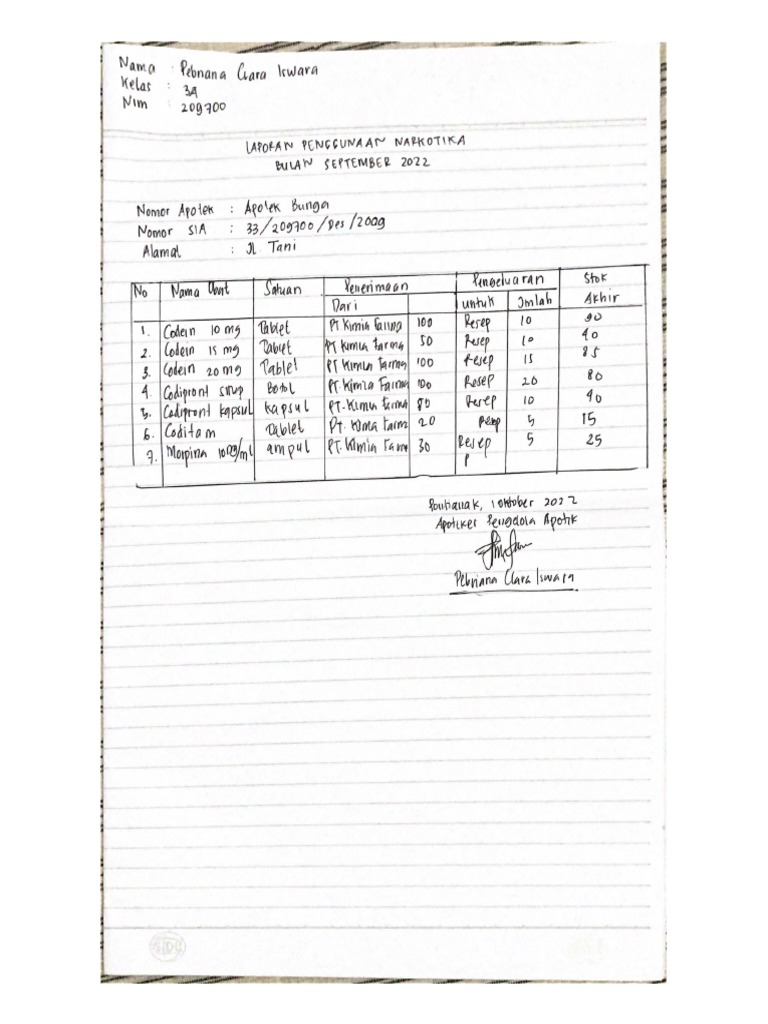 Nama : Pebriana Clara Iswara
Kelas : 3A
Nim : 209700
LAPORAN PENGGUNAAN NARKOTIKA
BULAN SEPTEMBER 2022
Nomor Apotek : Apotek Bunga
Nomor SIA : 33/209700/Des/2009
Alamat : Jl. Tani
No Nama Obat Satuan Penerimaan Pengeluaran Stok
Dari untuk Jmlah Akhir
1. Codein 10 mg Tablet PT Kimia Farma 100 Resep 10 90
2. Codein 15 mg Tablet PT Kimia Farma 50 Resep 10 40
3. Codein 20 mg Tablet PT Kimia Farma 100 Resep 15 85
4. Codipront sirup Botol PT Kimia Farma 100 Resep 20 80
5. Codipront kapsul kapsul PT. Kimia Farma 80 Resep 10 90
6. Coditam Tablet PT. Kimia Farm 20 Resep 5 15
7. Morpina 10mg/ml ampul PT. Kimia Farm 30 Resep 5 25
P
Pontianak, 1 Oktober 2022
Apoteker Pengelola Apotik
Pebriana Clara Iswara